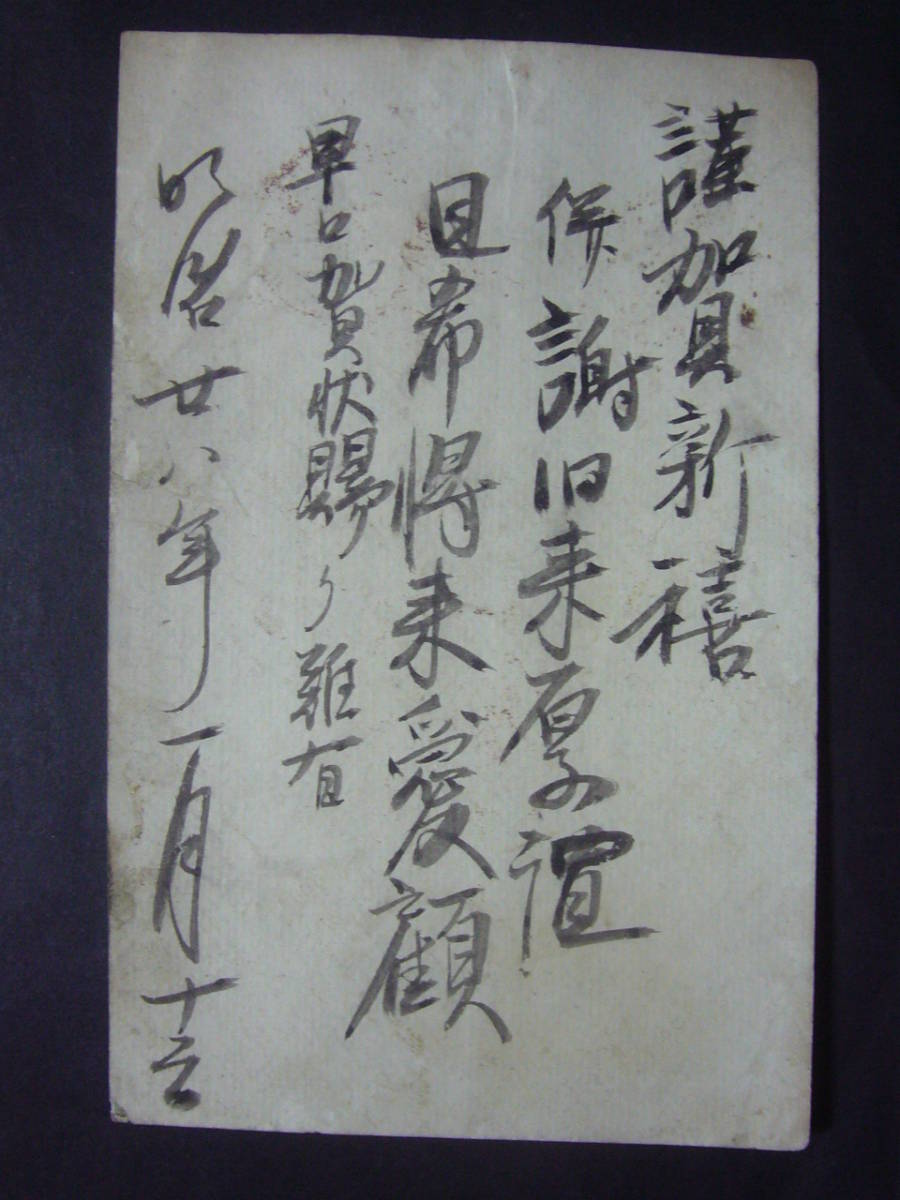 謹賀新禧
併謝旧来厚誼
且希得来愛顧
早口賀状賜り難有
明治廿八年一月十三